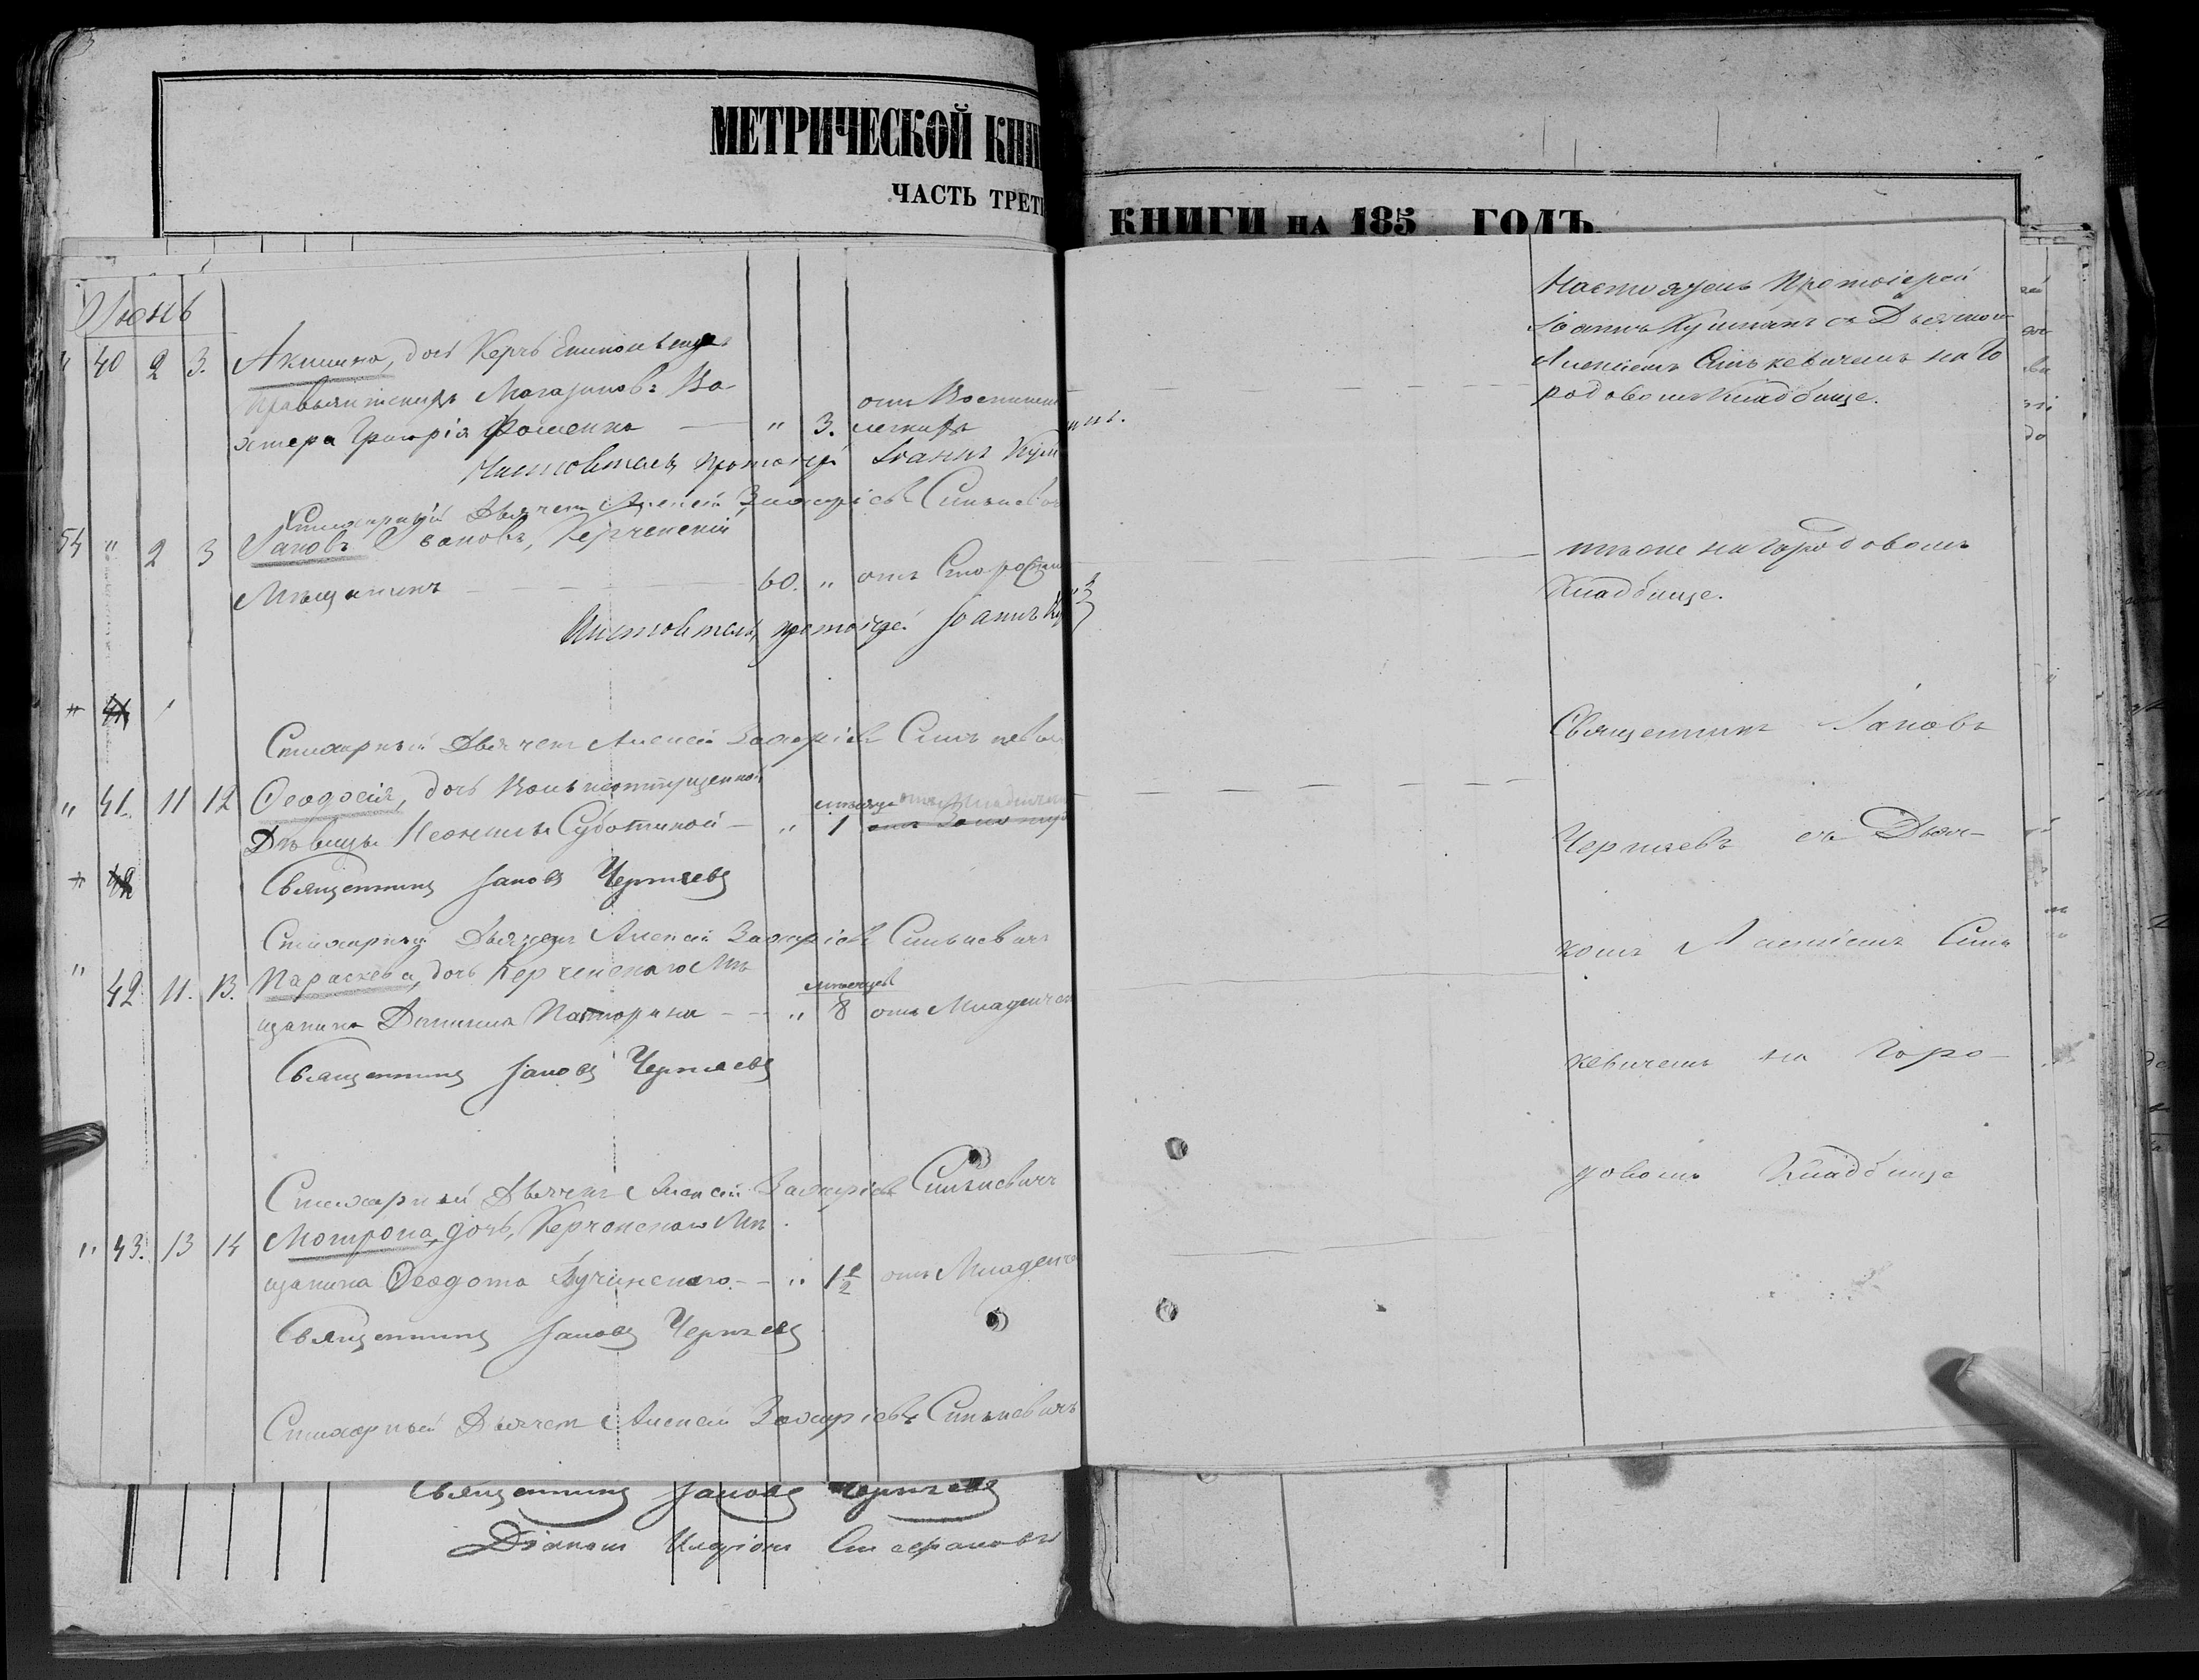 МЕТРИЧЕСКОЙ КНИ
ЧАСТЬ ТРЕТ
КНИГИ НА 185 ГОДЪ.
Іюнь
" 40 2 3. Акилина, дочь Керчь Еникольскихъ
Провіянтскихъ Магазиновъ Ва-
хтера Григорія Фоменка — " 3. отъ Воспиленія
легкихъ
Настоятель протоіерей Іоаннъ Кум
Стихарный Дьячекъ Алексей Захаріевъ Синькевичъ
54 " 2 3 Іаковъ Ивановъ, Керченскій
Мещанинъ — 60. " отъ Старости
Настоятель протоіерей Іоаннъ Ку
" 41
Стихарный Дьячекъ Алексей Захаріевъ Синькевичъ
" 41. 11 12 Ѳеодосія, дочь Вольноотпущенной
Дѣвицы Неонилы Суботиной — " месяца 1 отъ Младенческой
" 42
Священникъ Іаковъ Черняевъ
Стихарный Дьячекъ Алексей Захаріевъ Синькевичъ
" 42. 11. 13. Параскева, дочь Керченскаго Мѣ
щанина Даниила — — " месяцевъ 8 отъ Младенческ
Священникъ Іаковъ Черняевъ
Стихарный Дьячекъ Алексей Захаріевъ Синькевичъ
" 43. 13 14 Мотрона, дочь, Керченскаго Мѣ
щанина Ѳеодота Бучинскаго — — " 1 1/2 отъ Младенче
Священникъ Іаковъ Черняевъ
Стихарный Дьячекъ Алексей Захаріевъ Синькевичъ
Священникъ Іаковъ Черняевъ
Діаконъ Стефановъ
Настоятель Протоіерей
Іоаннъ съ Дьячкомъ
Алексіемъ Синькевичемъ на Го
родовомъ Кладбище.
тѣже на Городовомъ
Кладбище.
Священникъ Іаковъ
Черняевъ съ Дьяч-
комъ Алексіемъ Синь
кевичемъ на Горо-
довомъ Кладбище